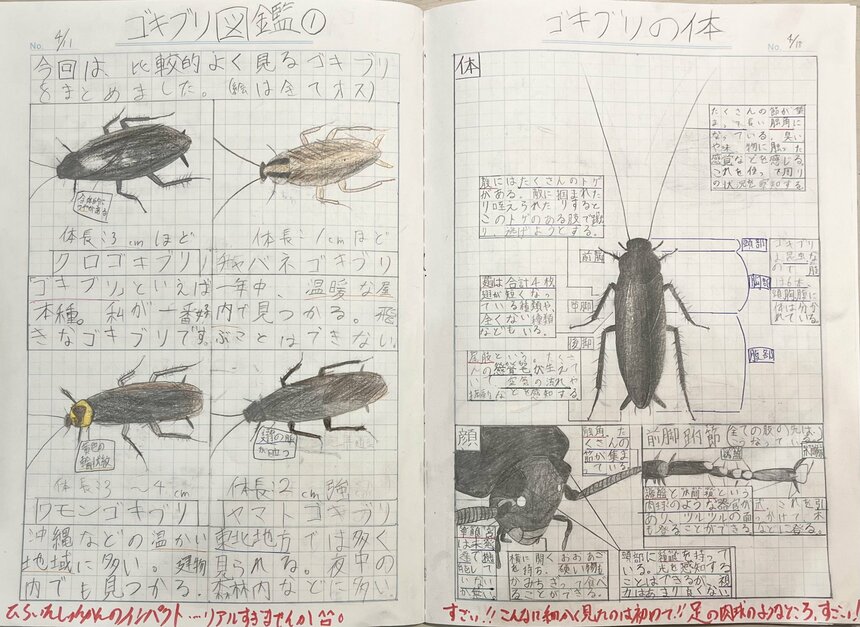 ゴキブリ図鑑①
No. 4/11
今回は、比較的よく見るゴキブリ
をまとめました。(絵は全てオス)
体長:3cmほど
クロゴキブリ
「ゴキブリ」といえば
本種。私が一番好
きなゴキブリです。
体長:1cmほど
チャバネゴキブリ
一年中、温暖な屋
内で見つかる。飛
ぶことはできない。
黄色の
輪状紋
体長:3〜4cm
ワモンゴキブリ
沖縄などの温かい
地域に多い。建物
内でも見つかる。
体長:2cm強
ヤマトゴキブリ
東北地方では多く
見られる。夜中の
森林内などに多い。
ゴキブリの体
No. 4/18
体
たくさんの節が集
まって長い触角に
なっている。臭い
や味、物に触った
感覚などを感じる。
これを使って周り
の状況を感知する
肢にはたくさんのトゲ
がある。敵に掴まれた
り咥えられたりすると
このトゲのある肢で蹴
り、逃げようとする。
前脚
中脚
後脚
頭部
胸部
腹部
ゴキブリ
は昆虫な
ので、肢
は6本、
頭胸腹に
体は分か
れている。
翅は合計4枚
翅が短くなっ
ている種類や
全くない種類
などもいる。
尾肢という。たくさ
んの感覚毛が生えて
いて、空気の流れや
振動などを感知する。
顔
触角。た
くさんの
節が集ま
っている
前脚跗節
全ての肢の先は、
こうなっている。
横に開く大あご
を持ち、硬い物も
かみちぎって食べ
ることができる。
頭部に複眼を持って
いる。光を感知する
ことはできるが、視
力はあまり良くない
すごい!!こんなに細かく見たのは初めて!!足の肉球のようなところ、すごい!